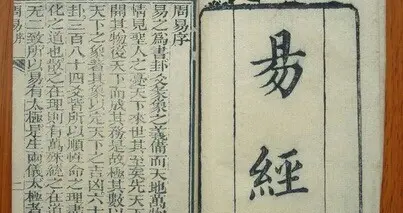 易經
周易序
易之為書卦爻彖象之義備而天地萬物
情見聖人之憂天下來世其至矣先天下
開其物後天下而成其務是故極其數以
天下之象著其象以定天下之吉凶六十
卦三百八十四爻皆所以順性命之理盡
化之道也散之在理則有萬殊統之在道
無二致所以易有太極是生兩儀太極
周易序